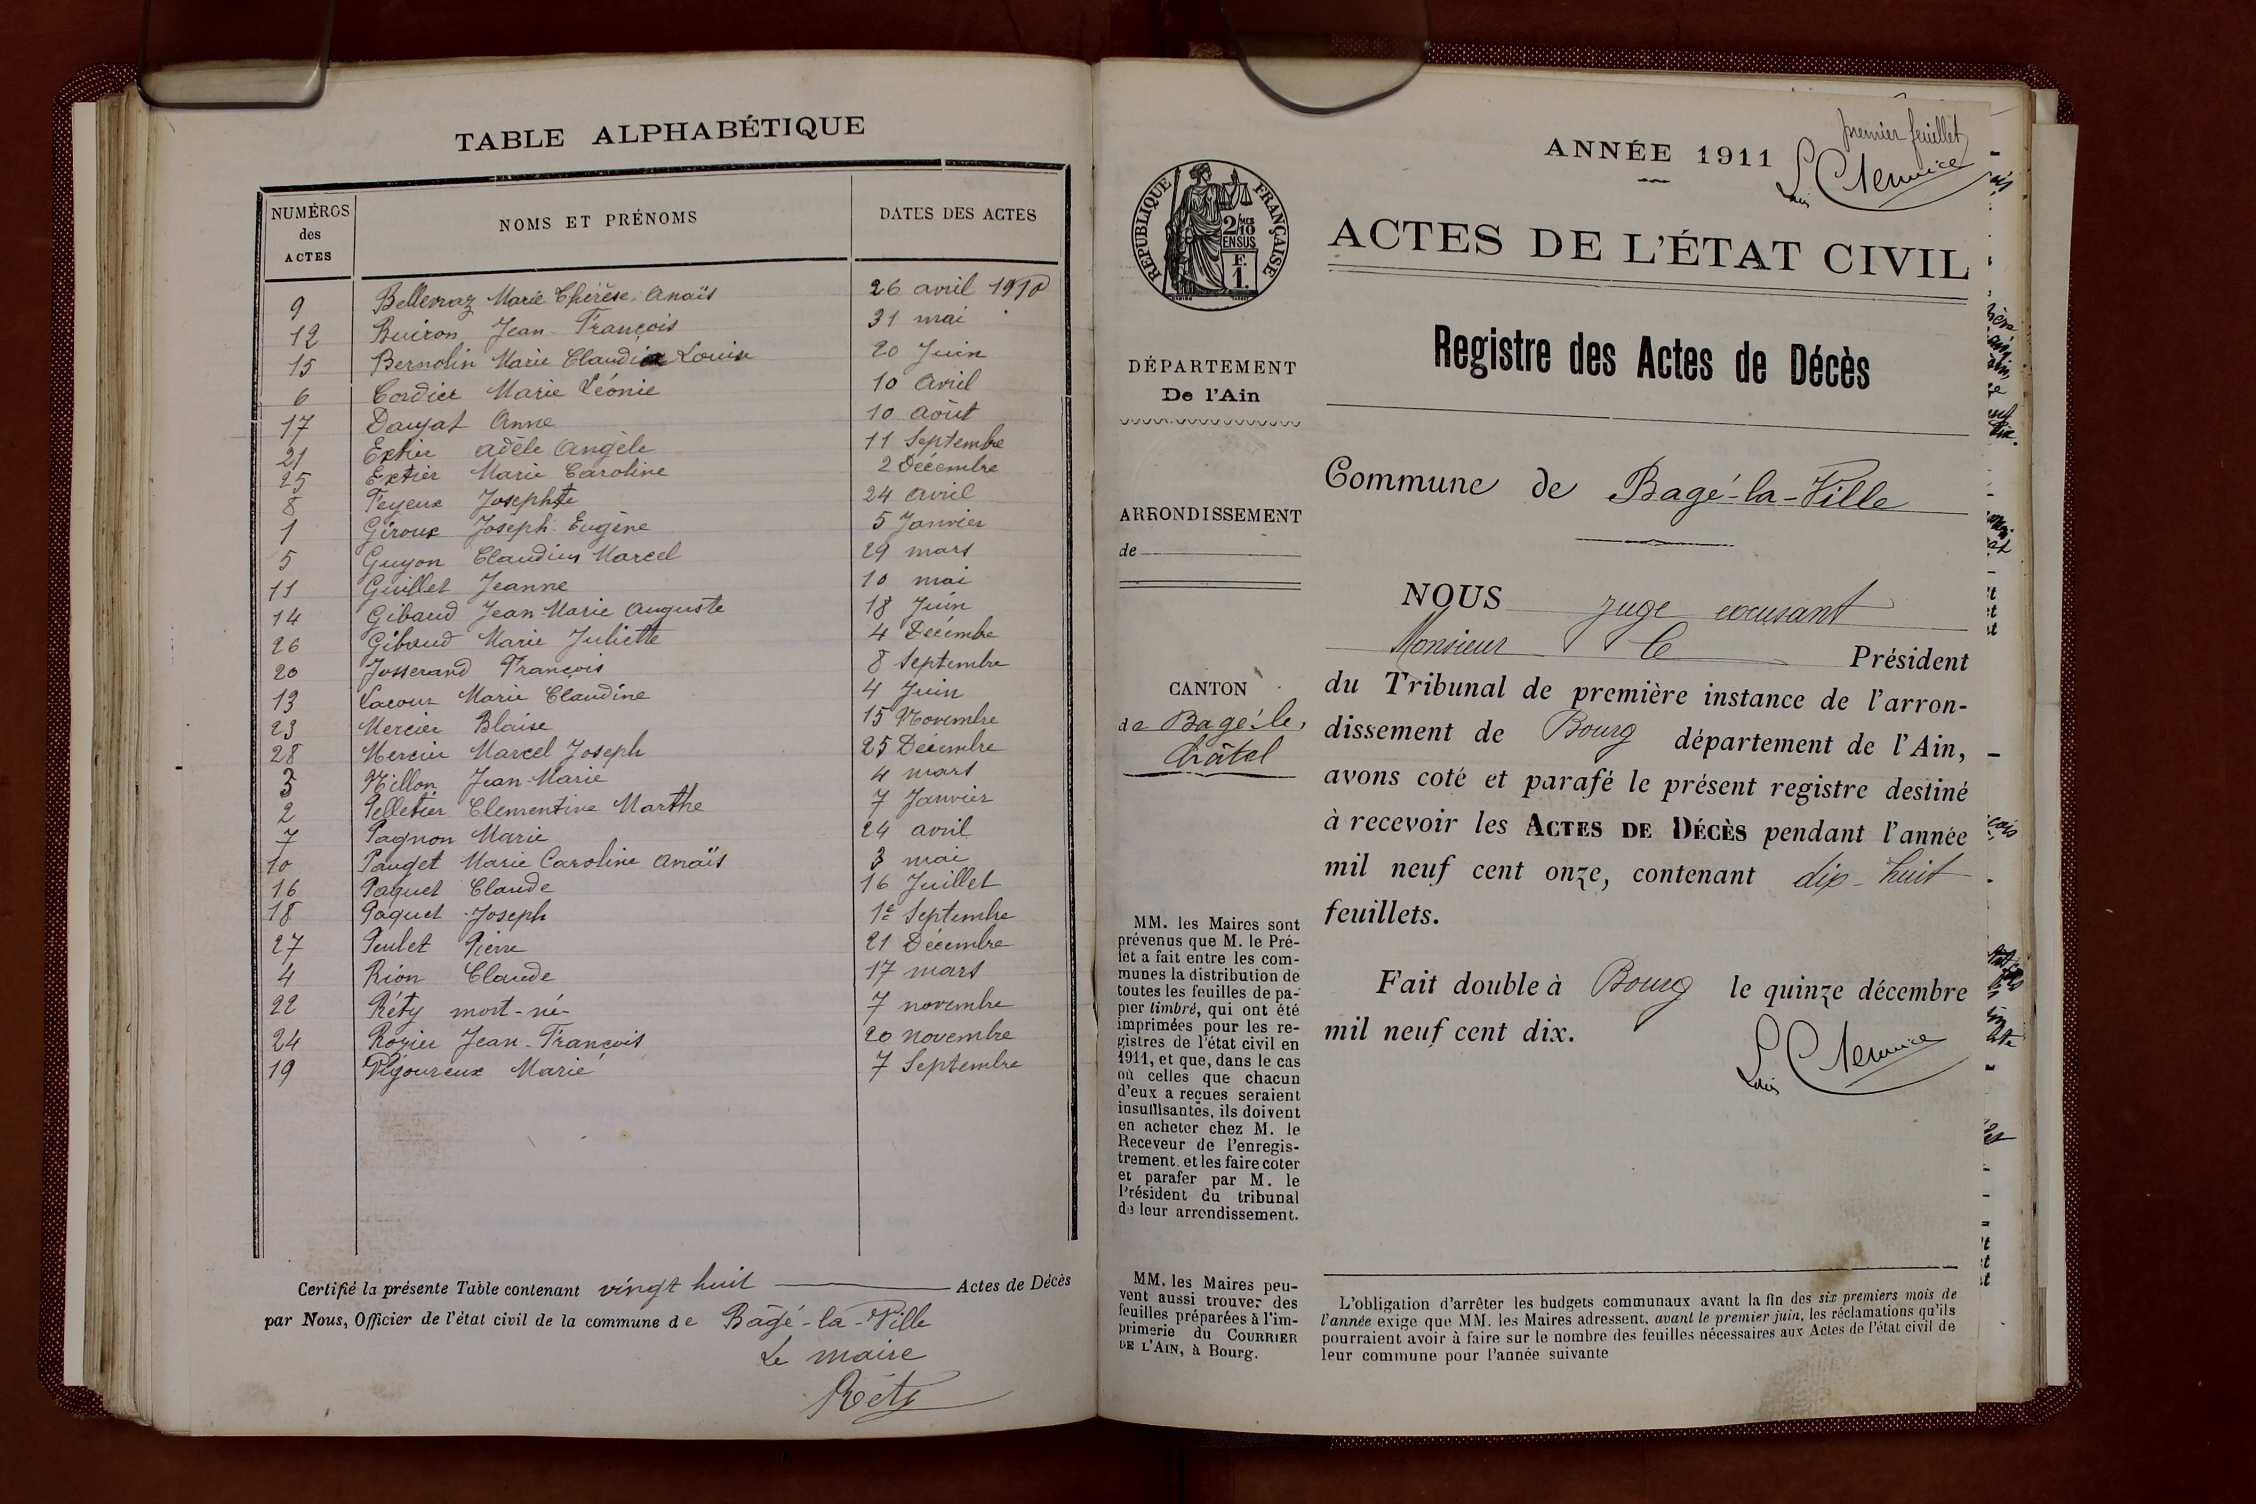 TABLE ALPHABÉTIQUE
NUMÉROS des ACTES NOMS ET PRÉNOMS DATES DES ACTES
9 Bellevraz Marie Thérèse Anaïs 26 avril 1910
12 Buiron Jean-François 31 mai
15 Bernolin Marie Claudia Louise 20 Juin
6 Cordier Marie Léonie 10 Avril
17 Daujat Anne 10 Août
21 Extier Adèle Angèle 11 Septembre
25 Extier Marie Caroline 2 Décembre
8 Feyeux Josephte 24 avril
1 Giroux Joseph Eugène 5 Janvier
5 Guyon Claudius Marcel 29 mars
11 Guillet Jeanne 10 mai
14 Gibaud Jean Marie Auguste 18 Juin
26 Gibaud Marie Juliette 4 Décembre
20 Josserand François 8 Septembre
13 Lacour Marie Claudine 4 Juin
23 Mercier Blaise 15 Novembre
28 Mercier Marcel Joseph 25 Décembre
3 Millon Jean-Marie 4 mars
2 Pelletier Clementine Marthe 7 Janvier
7 Pagnon Marie 24 avril
10 Pauget Marie Caroline Anaïs 3 mai
16 Paquet Claude 16 Juillet
18 Paquet Joseph 1e Septembre
27 Peulet Pierre 21 Décembre
4 Rion Claude 17 mars
22 Réty mort-né 7 novembre
24 Rozier Jean-François 20 novembre
19 Vigoureux Marie 7 Septembre
Certifié la présente Table contenant vingt huit Actes de Décès
par Nous, Officier de l'état civil de la commune de Bâgé-la-Ville
Le maire
Réty
premier feuillet
ANNÉE 1911
RÉPUBLIQUE FRANÇAISE
2/10
EN SUS
F.
1.
ACTES DE L'ÉTAT CIVIL
Registre des Actes de Décès
DÉPARTEMENT
De l'Ain
Commune de Bagé-la-Ville
ARRONDISSEMENT
de
NOUS juge
Monsieur le Président
du Tribunal de première instance de l'arron-
dissement de Bourg département de l'Ain,
avons coté et parafé le présent registre destiné
à recevoir les ACTES DE DÉCÈS pendant l'année
mil neuf cent onze, contenant dix-huit
feuillets.
CANTON
de Bagé-le-
Châtel
Fait double à Bourg le quinze décembre
mil neuf cent dix.
MM. les Maires sont
prévenus que M. le Pré-
fet a fait entre les com-
munes la distribution de
toutes les feuilles de pa-
pier timbré, qui ont été
imprimées pour les re-
gistres de l'état civil en
1911, et que, dans le cas
où celles que chacun
d'eux a reçues seraient
insuffisantes, ils doivent
en acheter chez M. le
Receveur de l'enregis-
trement et les faire coter
et parafer par M. le
Président du tribunal
de leur arrondissement.
MM. les Maires peu-
vent aussi trouver des
feuilles préparées à l'im-
primerie du COURRIER
DE L'AIN, à Bourg.
L'obligation d'arrêter les budgets communaux avant la fin des six premiers mois de
l'année exige que MM. les Maires adressent, avant le premier juin, les réclamations qu'ils
pourraient avoir à faire sur le nombre des feuilles nécessaires aux Actes de l'état civil de
leur commune pour l'année suivante